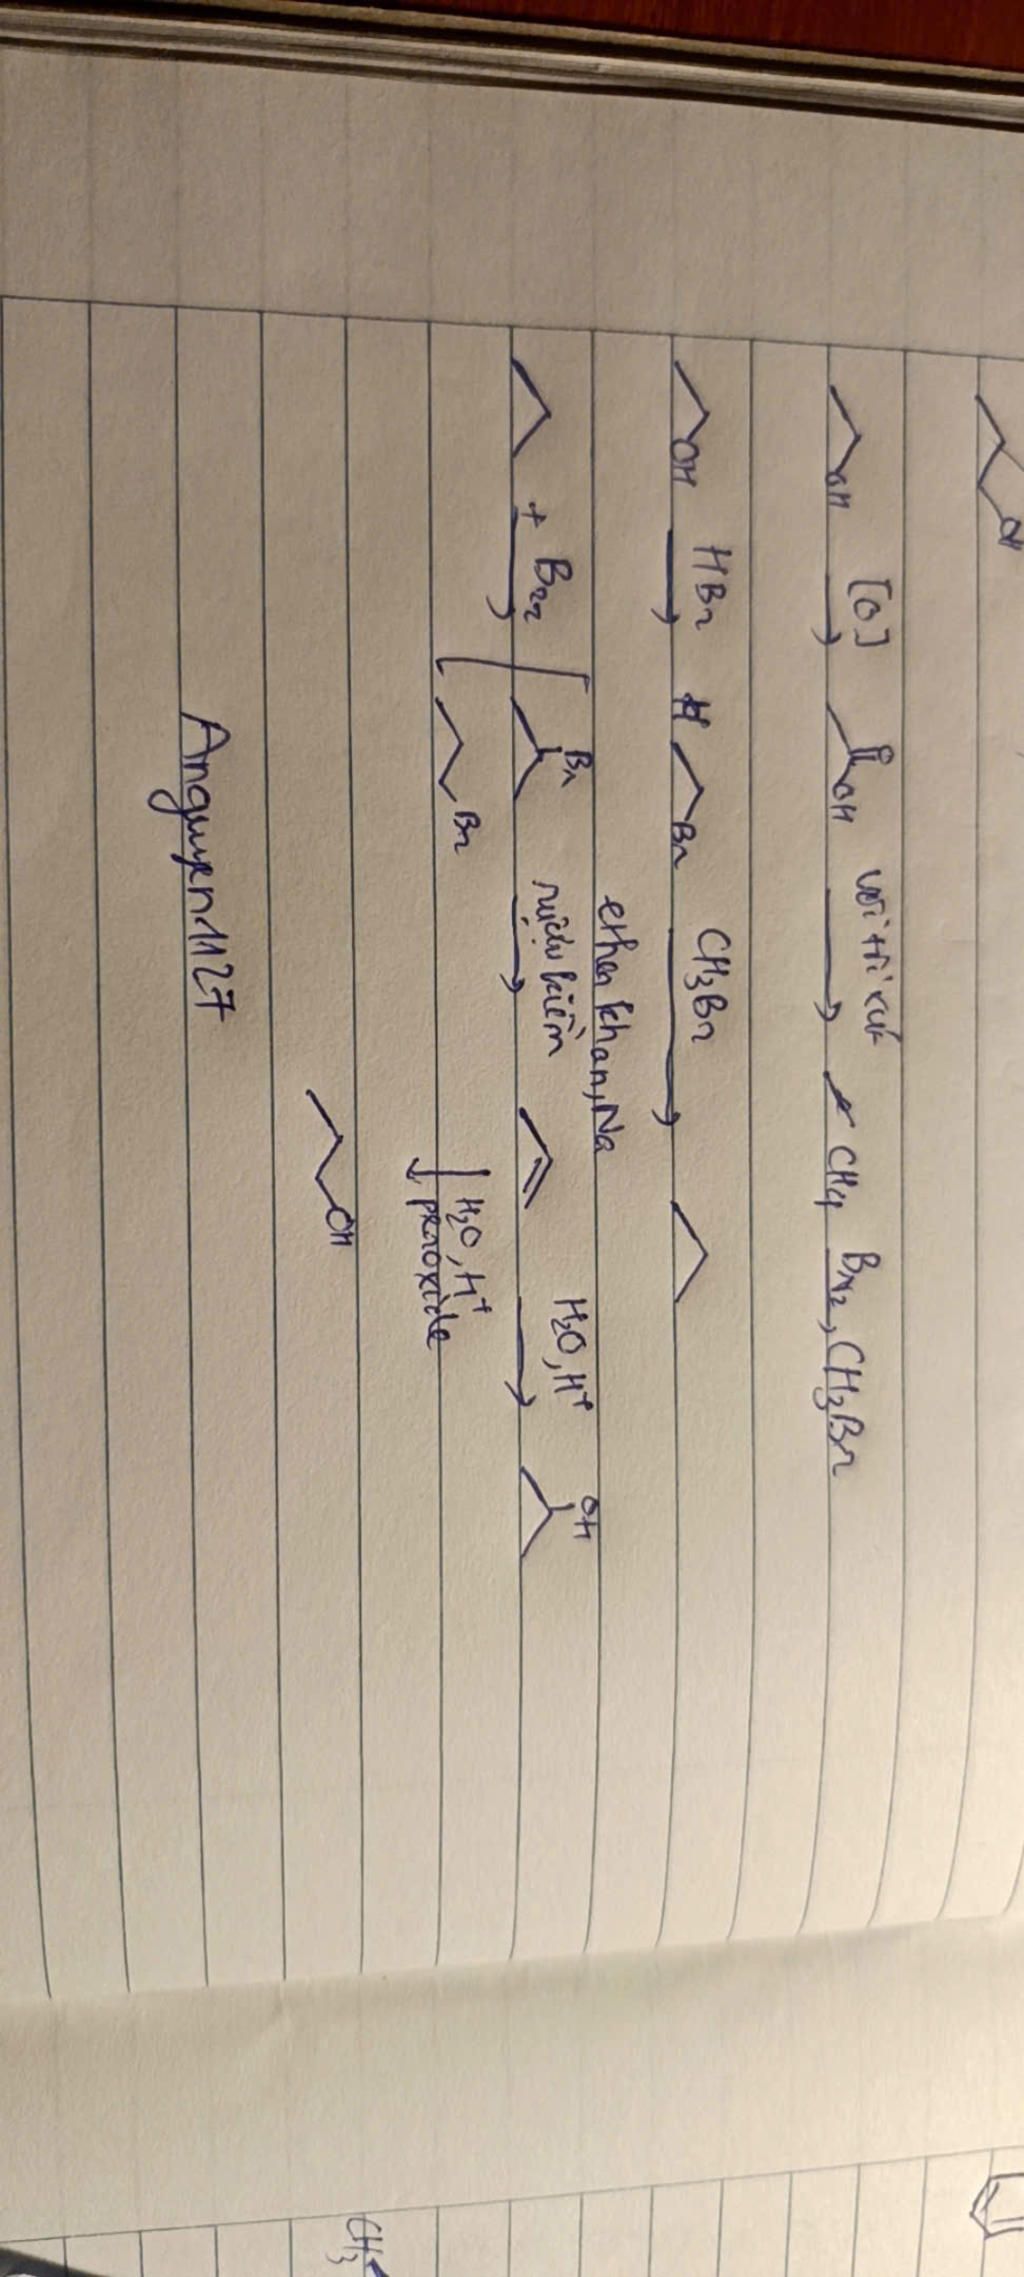 OH
OH [O] O OH vôi tôi xút CH4 Br2, CH3Br
OH HBr Br CH3Br
ether khan, Na
+ Br2 Br rượu kiềm H2O, H+ OH
Br H2O, H+
peroxide
OH
Anguyen1127
CH3